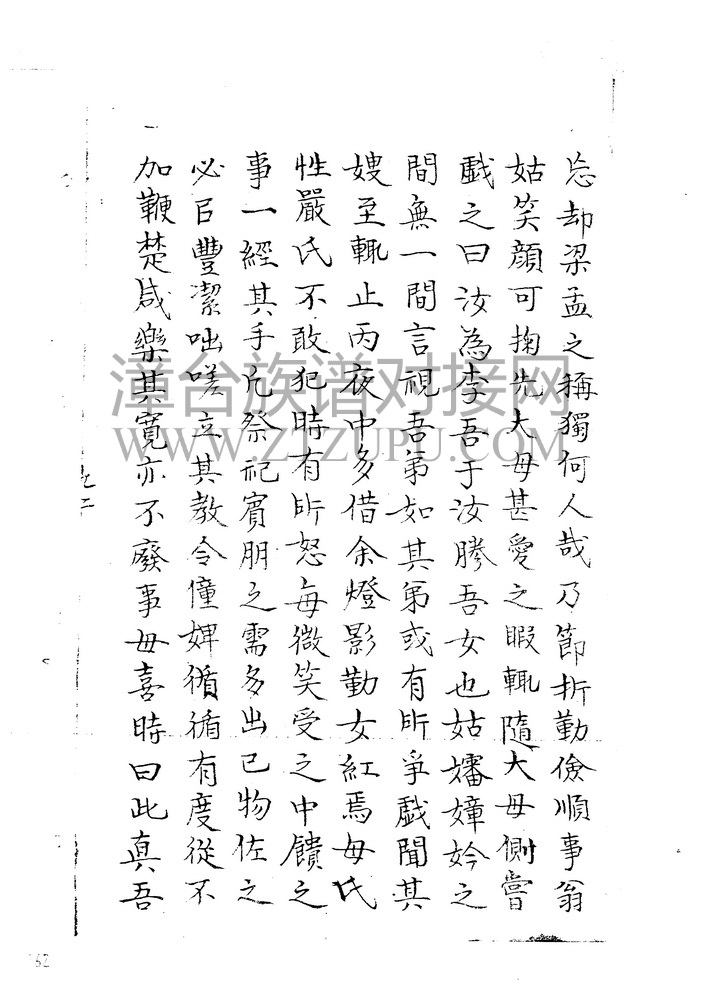 忘却梁孟之稱獨何人哉乃節折勤儉順事翁
姑笑顏可掬先大母甚愛之暇輒隨大母側嘗
戲之曰汝為李吾于汝勝吾女也姑嬸嫜妗之
間無一間言視吾弟如其弟或有所爭戲聞其
嫂至輒止丙夜中多借余燈影勤女紅焉母氏
性嚴氏不敢犯時有所怒每微笑受之中饋之
事一經其手凡祭祀賓朋之需多出己物佐之
必㠯豐潔咄嗟立其教令僮婢循循有度從不
加鞭楚咸樂其寬亦不廢事毋喜時曰此真吾
漳台族谱对接网
WWW.ZTZUPU.COM
62